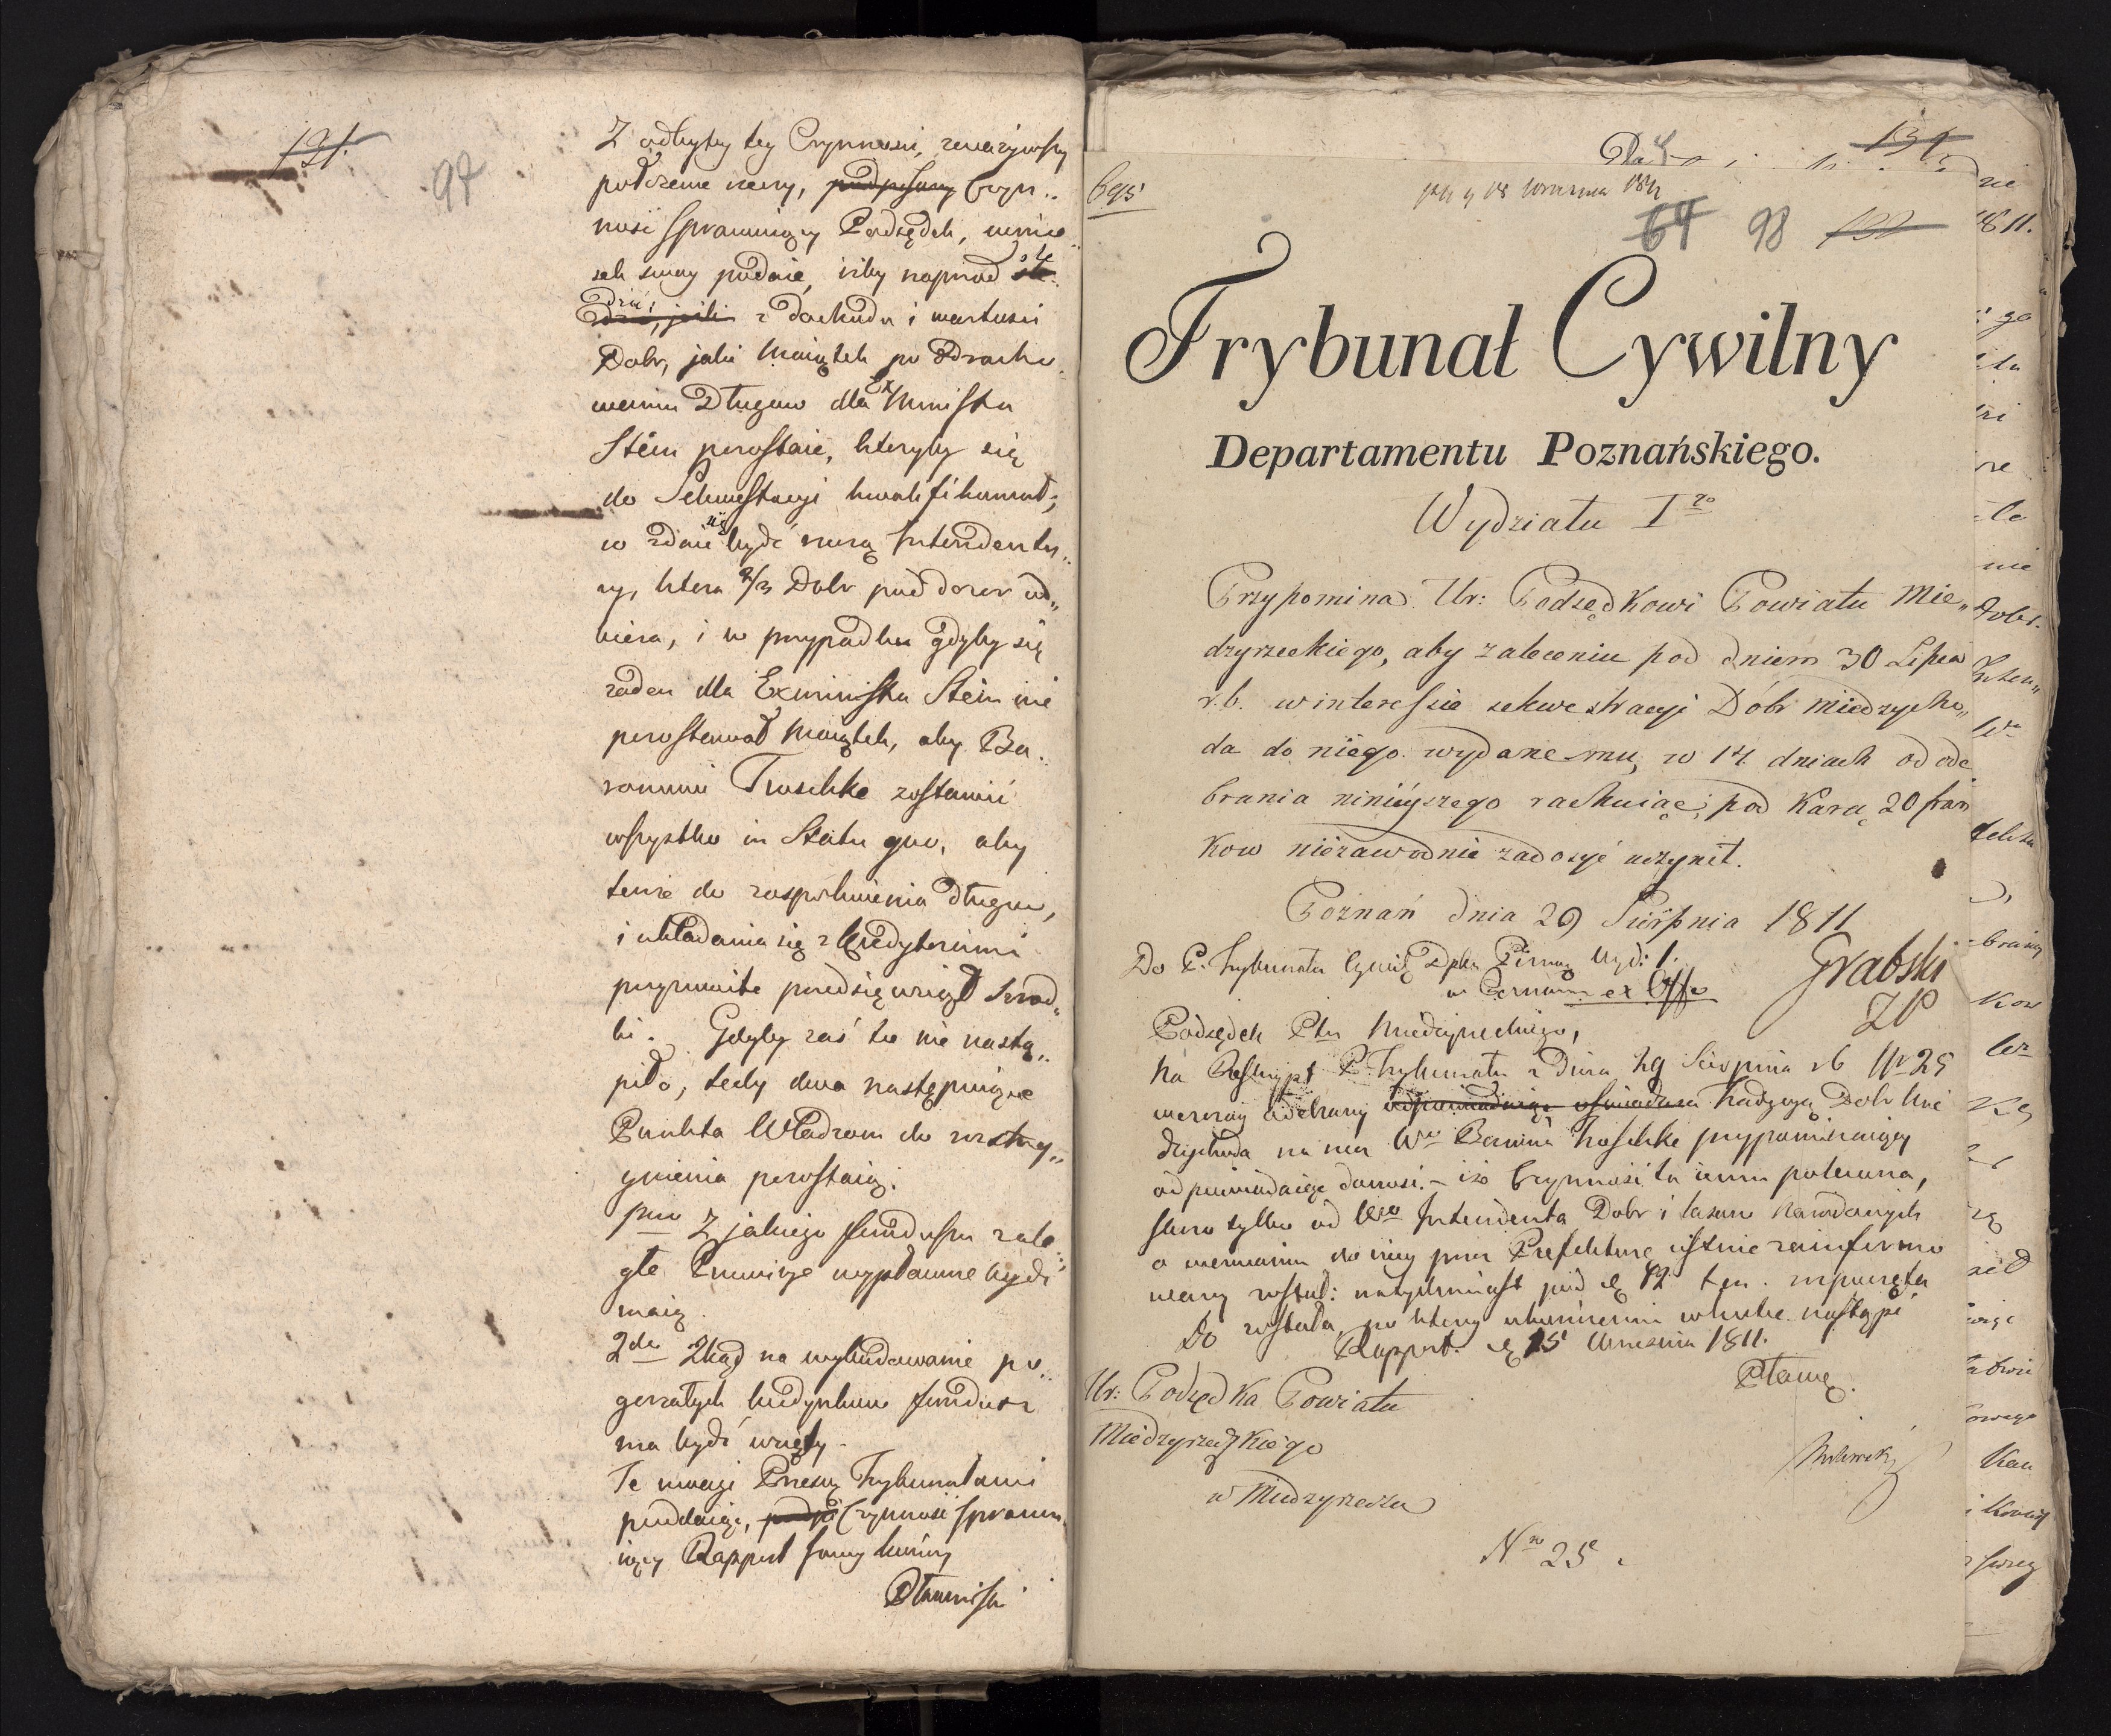 121.
97
Z odbytey tey Czynnosci, zważywszy
położenie rzeczy, podpisany Czyn..
nosc sprawuiący Podsędek, wnio..
sek swoy podaie, iżby naprzod
z dochodu i wartosci
Dobr, jaki Maiątek po Odracho..
waniu Długow dla Ex Ministra
Stein pozostaie, któryby się
do Sekwestracyi kwalifikował;
w zdanie bydź maią Intendentu..
ry, ktora 2/3 Dobr pod dozor od„
biera, i w przypadku gdyby się
żaden dla Exministra Stein nie
pozostawał Maiątek, aby Ba..
ronowi Troschke zostawić
wszystko in Statu quo, aby
tenże do zaspokoienia długow,
i układania się z Kredytorami
przyzwoite przedsięwziął śrzod„
ki. Gdyby zaś to nie nastą„
piło, tedy dwa następuiące
Punkta Władzom do rozstrzy„
gnienia pozostaią.
pmo Z jakiego funduszu zale..
głe Prowizye wypłacone bydź
maią.
2do Zkąd na wybudowanie po..
gorzałych budynkow fundusz
ma bydź wzięty.
Te uwagi Przesw. Trybunałowi
poddaiąc, Czynnosc sprawu„
iący Rapport swoy kończy
695
64 98 132
Trybunał Cywilny
Departamentu Poznańskiego.
Wydziału Igo
Przypomina Ur: Podsędkowi Powiatu Mię„
dzyrzeckiego, aby zaleceniu pod dniem 30 Lipca
r.b. w interessie sekwestracyi Dóbr Międzycho„
da do niego wydanemu, w 14 dniach od ode
brania ninieyszego rachuiąc, pod Karą 20 fran
kow niezawodnie zadosyć uczynił.
Poznań dnia 29 Sierpnia 1811
Grabski
ZP
Do P. Trybunału Cywil. Dptu Pozna. Wyd: 1.
w Poznaniu ex Offo
Podsędek Ptu Międzyrzeckiego,
Na Reskrypt P. Trybunału z Dnia 29 Sierpnia rb Nr 25
wczoray odebrany odpowiadaiąc Tradycyą Dobr Mię
dzychoda na rzecz Wo Barona Troschke przypominaiący
odpowiadaiąc donosi. - iż Czynnosc ta iemu polecona,
skoro tylko od Wgo Intendenta Dobr i lasow Narodowych
o wezwaniu do niey przez Prefekturę ustnie zainformo
wany został: natychmiast pod d. 12 t.m. rozpoczęta
została, po ktorey ukończeniu wkrotce nastąpi
Rapport. d. 15 Wrzesnia 1811.
Do
Ur: Podsędka Powiatu
Międzyrzeckiego
w Miedzyrzeczu
Nro 25.